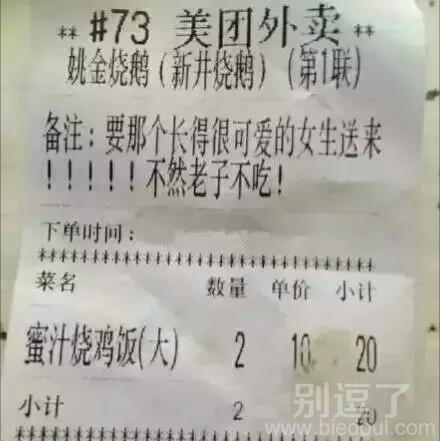 ** #73 美团外卖 **
姚金烧鹅(新井烧鹅)(第1联)
备注：要那个长得很可爱的女生送来
！！！！！不然老子不吃！
下单时间：
********************************
菜名 数量 单价 小计
********************************
蜜汁烧鸡饭(大) 2 10 20
小计 2 20
********************************
别逗了
www.biedoul.com